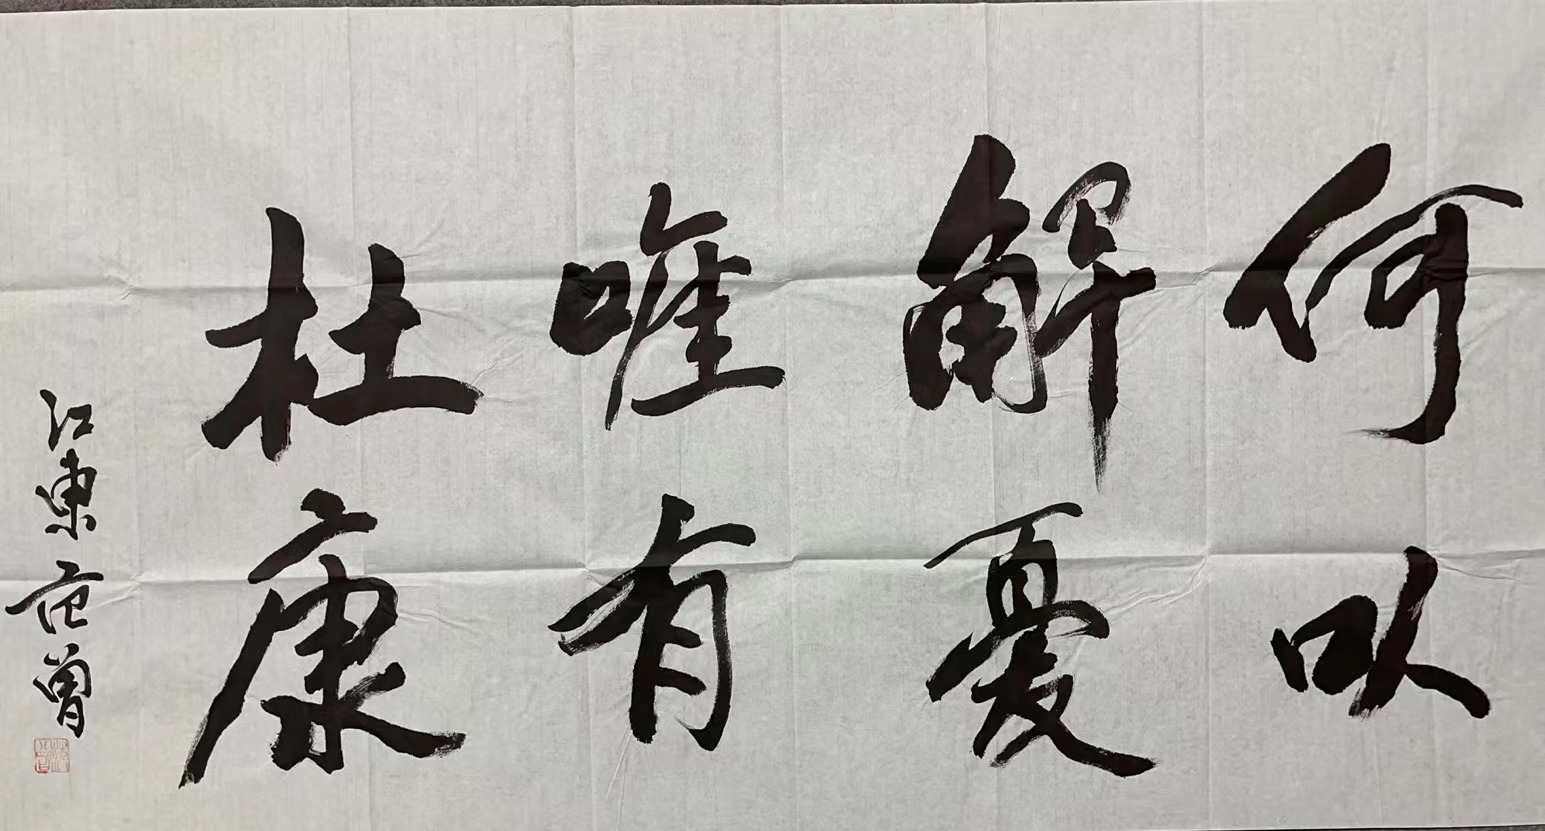 何以
解憂
唯有
杜康
江東范曾